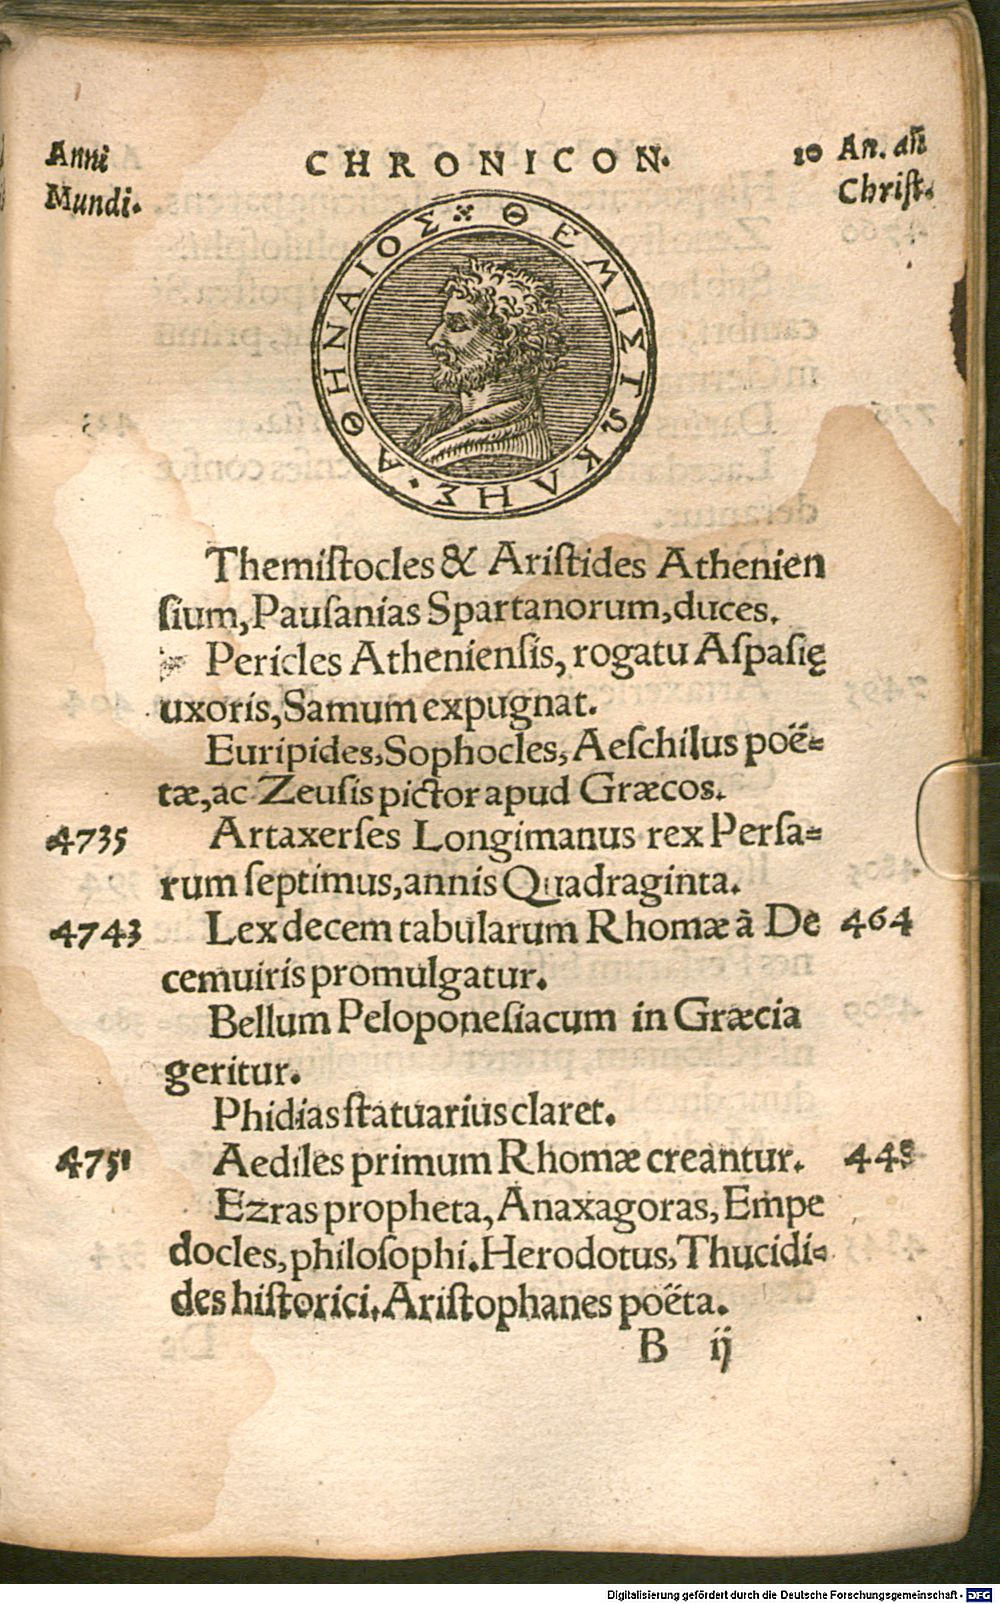 Anni
Mundi.
CHRONICON.
10 An. añ
Christ.
ΘΕΜΙΣΤΩΚΛΗΣ · ΑΘΗΝΑΙΟΣ
Themiſtocles & Ariſtides Athenien
ſium, Pauſanias Spartanorum, duces.
Pericles Athenienſis, rogatu Aſpaſię
uxoris, Samum expugnat.
Euripides, Sophocles, Aeſchilus poë⸗
tæ, ac Zeuſis pictor apud Græcos.
4735 Artaxerſes Longimanus rex Perſa⸗
rum ſeptimus, annis Quadraginta.
4743 Lex decem tabularum Rhomæ à De 464
cemuiris promulgatur.
Bellum Peloponeſiacum in Græcia
geritur.
Phidias ſtatuarius claret.
4751 Aediles primum Rhomæ creantur. 448
Ezras propheta, Anaxagoras, Empe
docles, philoſophi. Herodotus, Thucidi⸗
des hiſtorici. Ariſtophanes poëta.
B ij
Digitalisierung gefördert durch die Deutsche Forschungsgemeinschaft - DFG